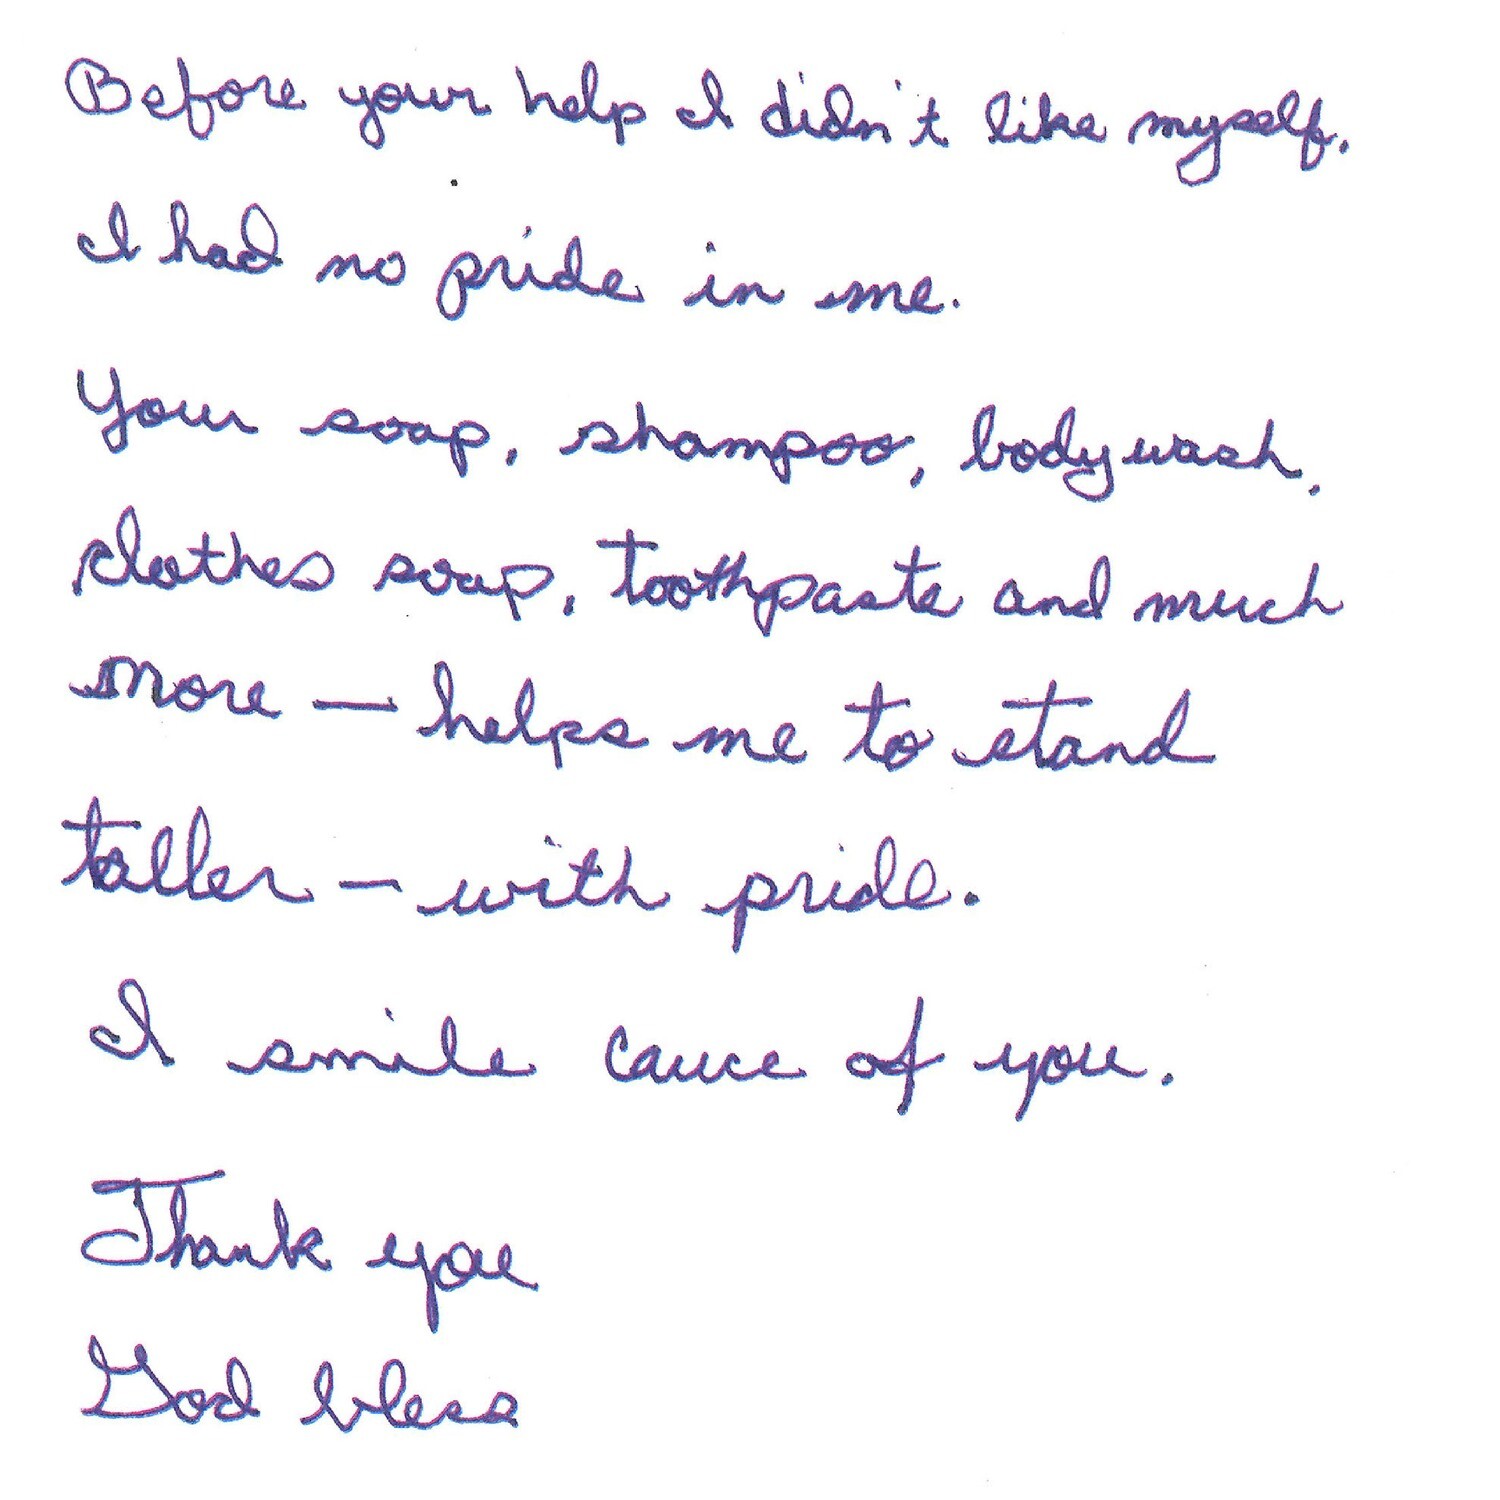 Before your help I didn't like myself.
I had no pride in me.
Your soap, shampoo, bodywash,
clothes soap, toothpaste and much
more — helps me to stand
taller — with pride.
I smile cause of you.
Thank you
God bless